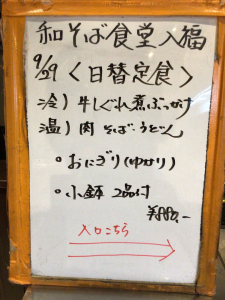 和そば食堂 入福
9/29 〈日替定食〉
冷) 牛しぐれ煮ぶっかけ
温) 肉 そば・うどん
・おにぎり(ゆかり)
・小鉢 2品付
¥880.-
入口こちら